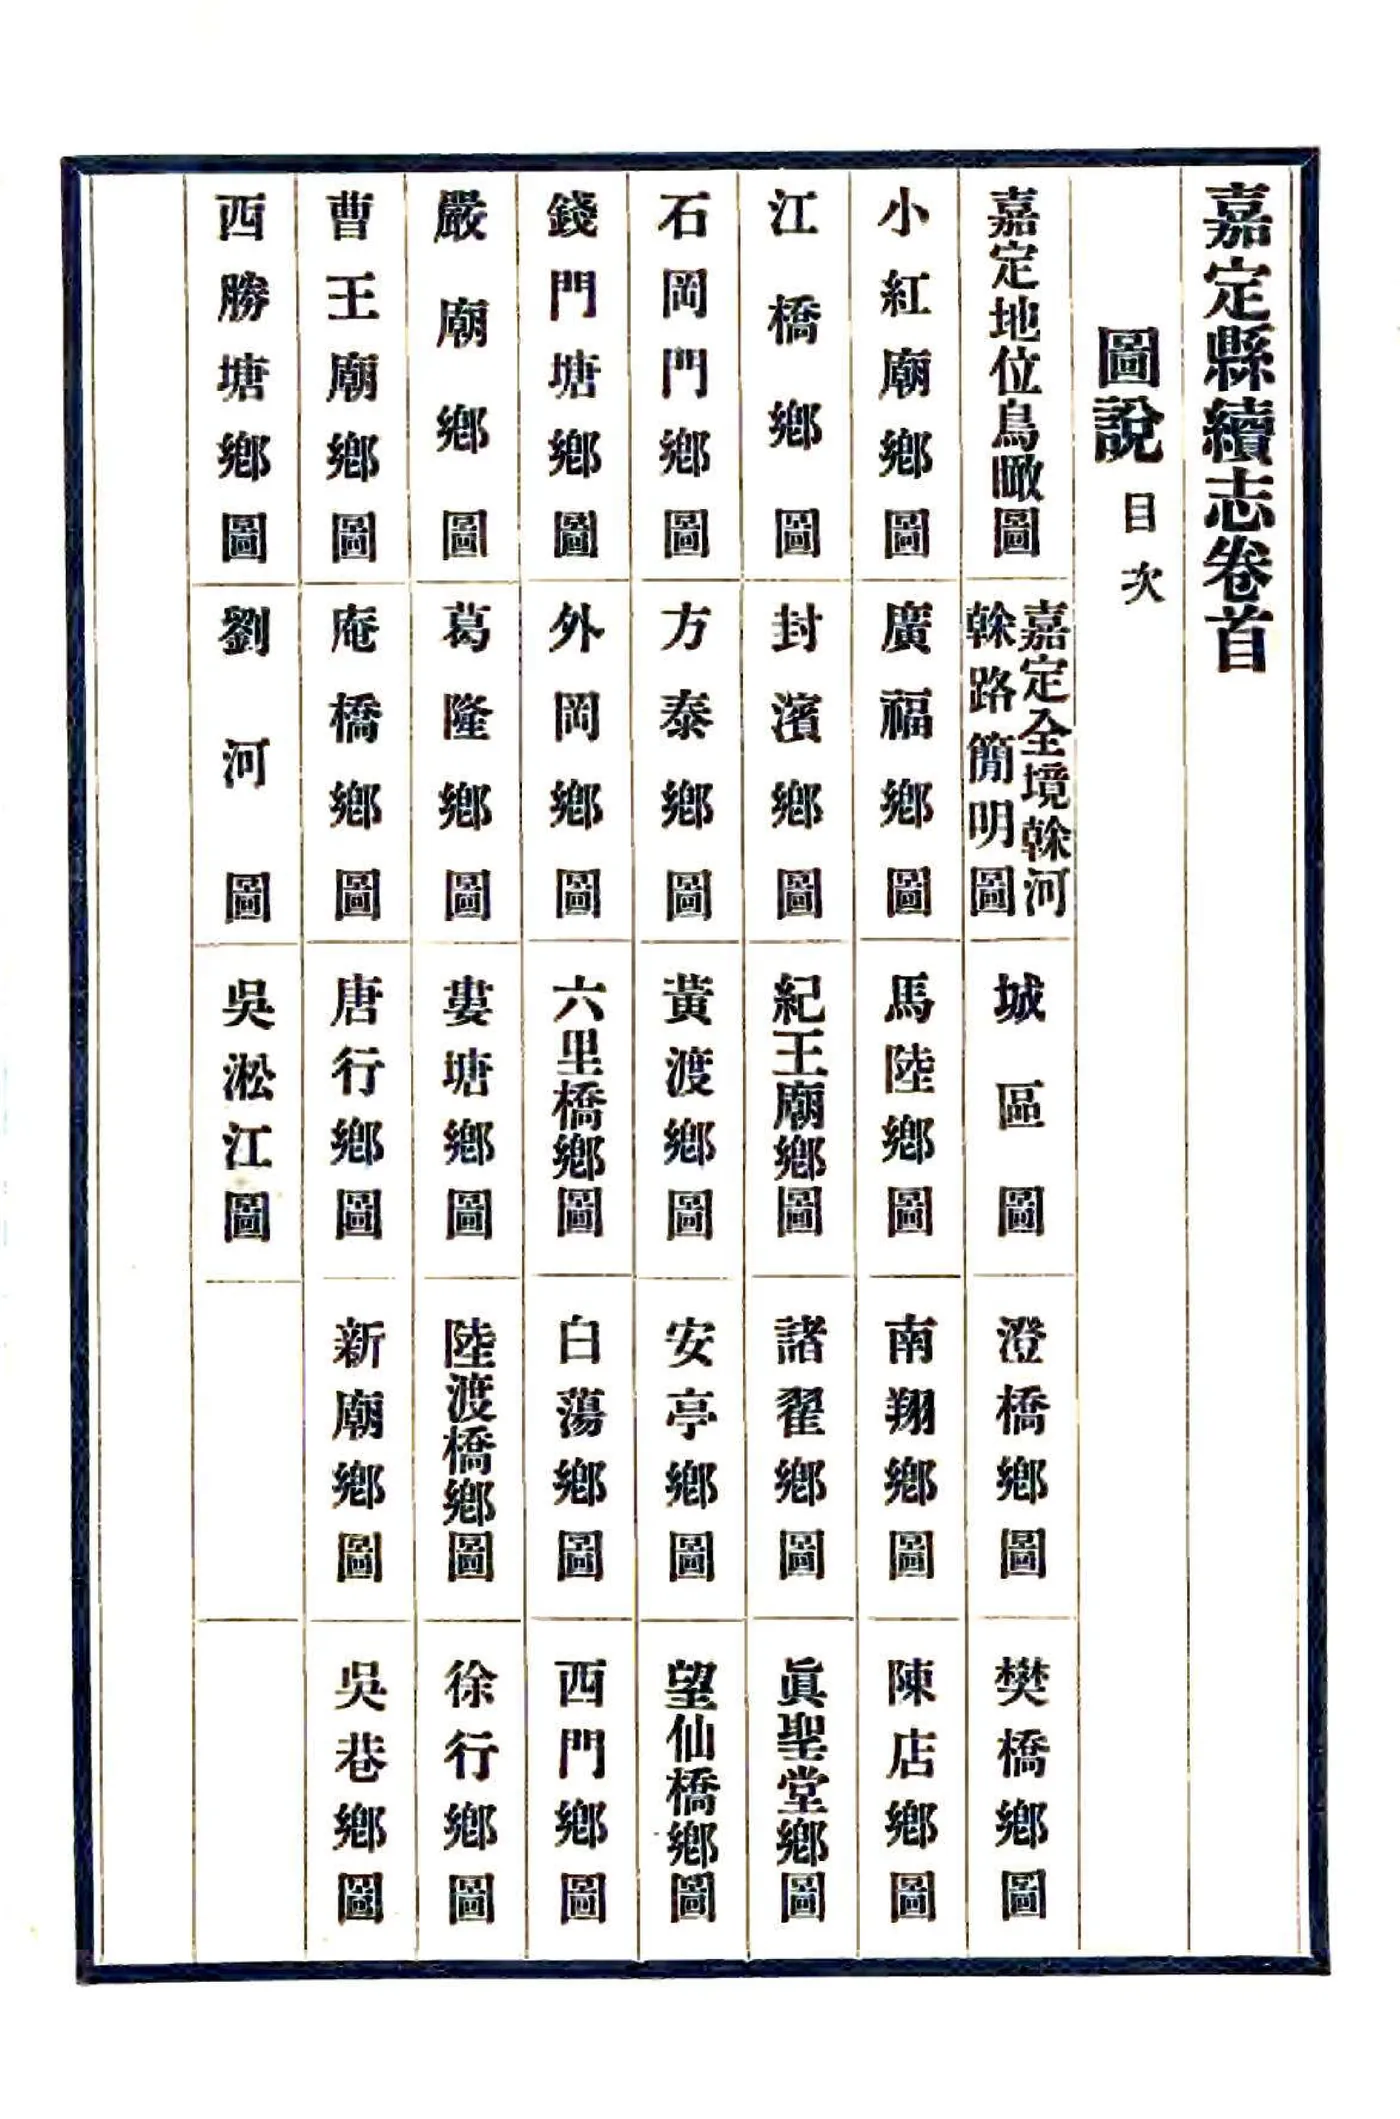 嘉定縣續志卷首
圖說 目次
嘉定地位鳥瞰圖
嘉定全境榦河
榦路簡明圖
城區圖
澄橋鄉圖
樊橋鄉圖
小紅廟鄉圖
廣福鄉圖
馬陸鄉圖
南翔鄉圖
陳店鄉圖
江橋鄉圖
封濱鄉圖
紀王廟鄉圖
諸翟鄉圖
眞聖堂鄉圖
石岡門鄉圖
方泰鄉圖
黃渡鄉圖
安亭鄉圖
望仙橋鄉圖
錢門塘鄉圖
外岡鄉圖
六里橋鄉圖
白蕩鄉圖
西門鄉圖
嚴廟鄉圖
葛隆鄉圖
婁塘鄉圖
陸渡橋鄉圖
徐行鄉圖
曹王廟鄉圖
庵橋鄉圖
唐行鄉圖
新廟鄉圖
吳巷鄉圖
西勝塘鄉圖
劉河圖
吳淞江圖